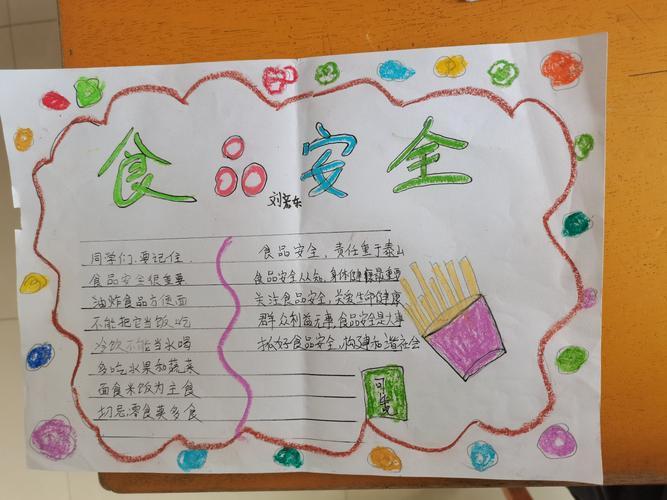 食品安全
刘宏东
同学们,要记住
食品安全很重要
油炸食品方便面
不能把它当饭吃
冷饮不能当水喝
多吃水果和蔬菜
面食米饭为主食
切忌零食莫多食
食品安全,责任重于泰山
食品安全人人知,身体健康最重要
关注食品安全,关爱生命健康
群众利益无小事,食品安全是大事
抓好食品安全,构建和谐社会
可